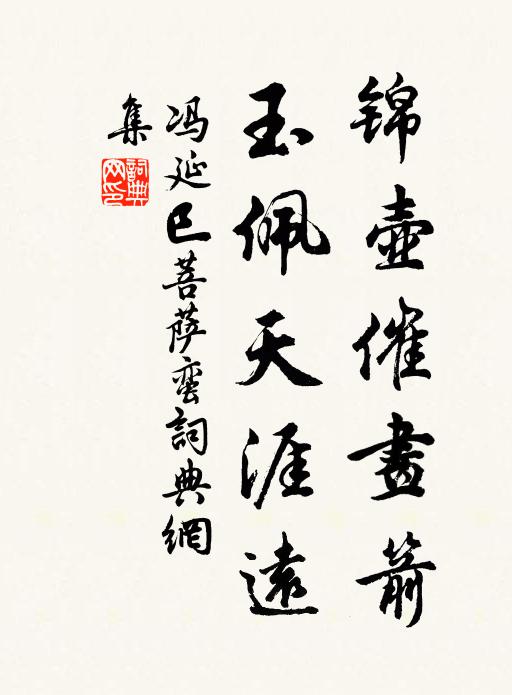 锦壶催画箭
玉佩天涯远
冯延巳菩萨蛮词典網
集
詞典网印